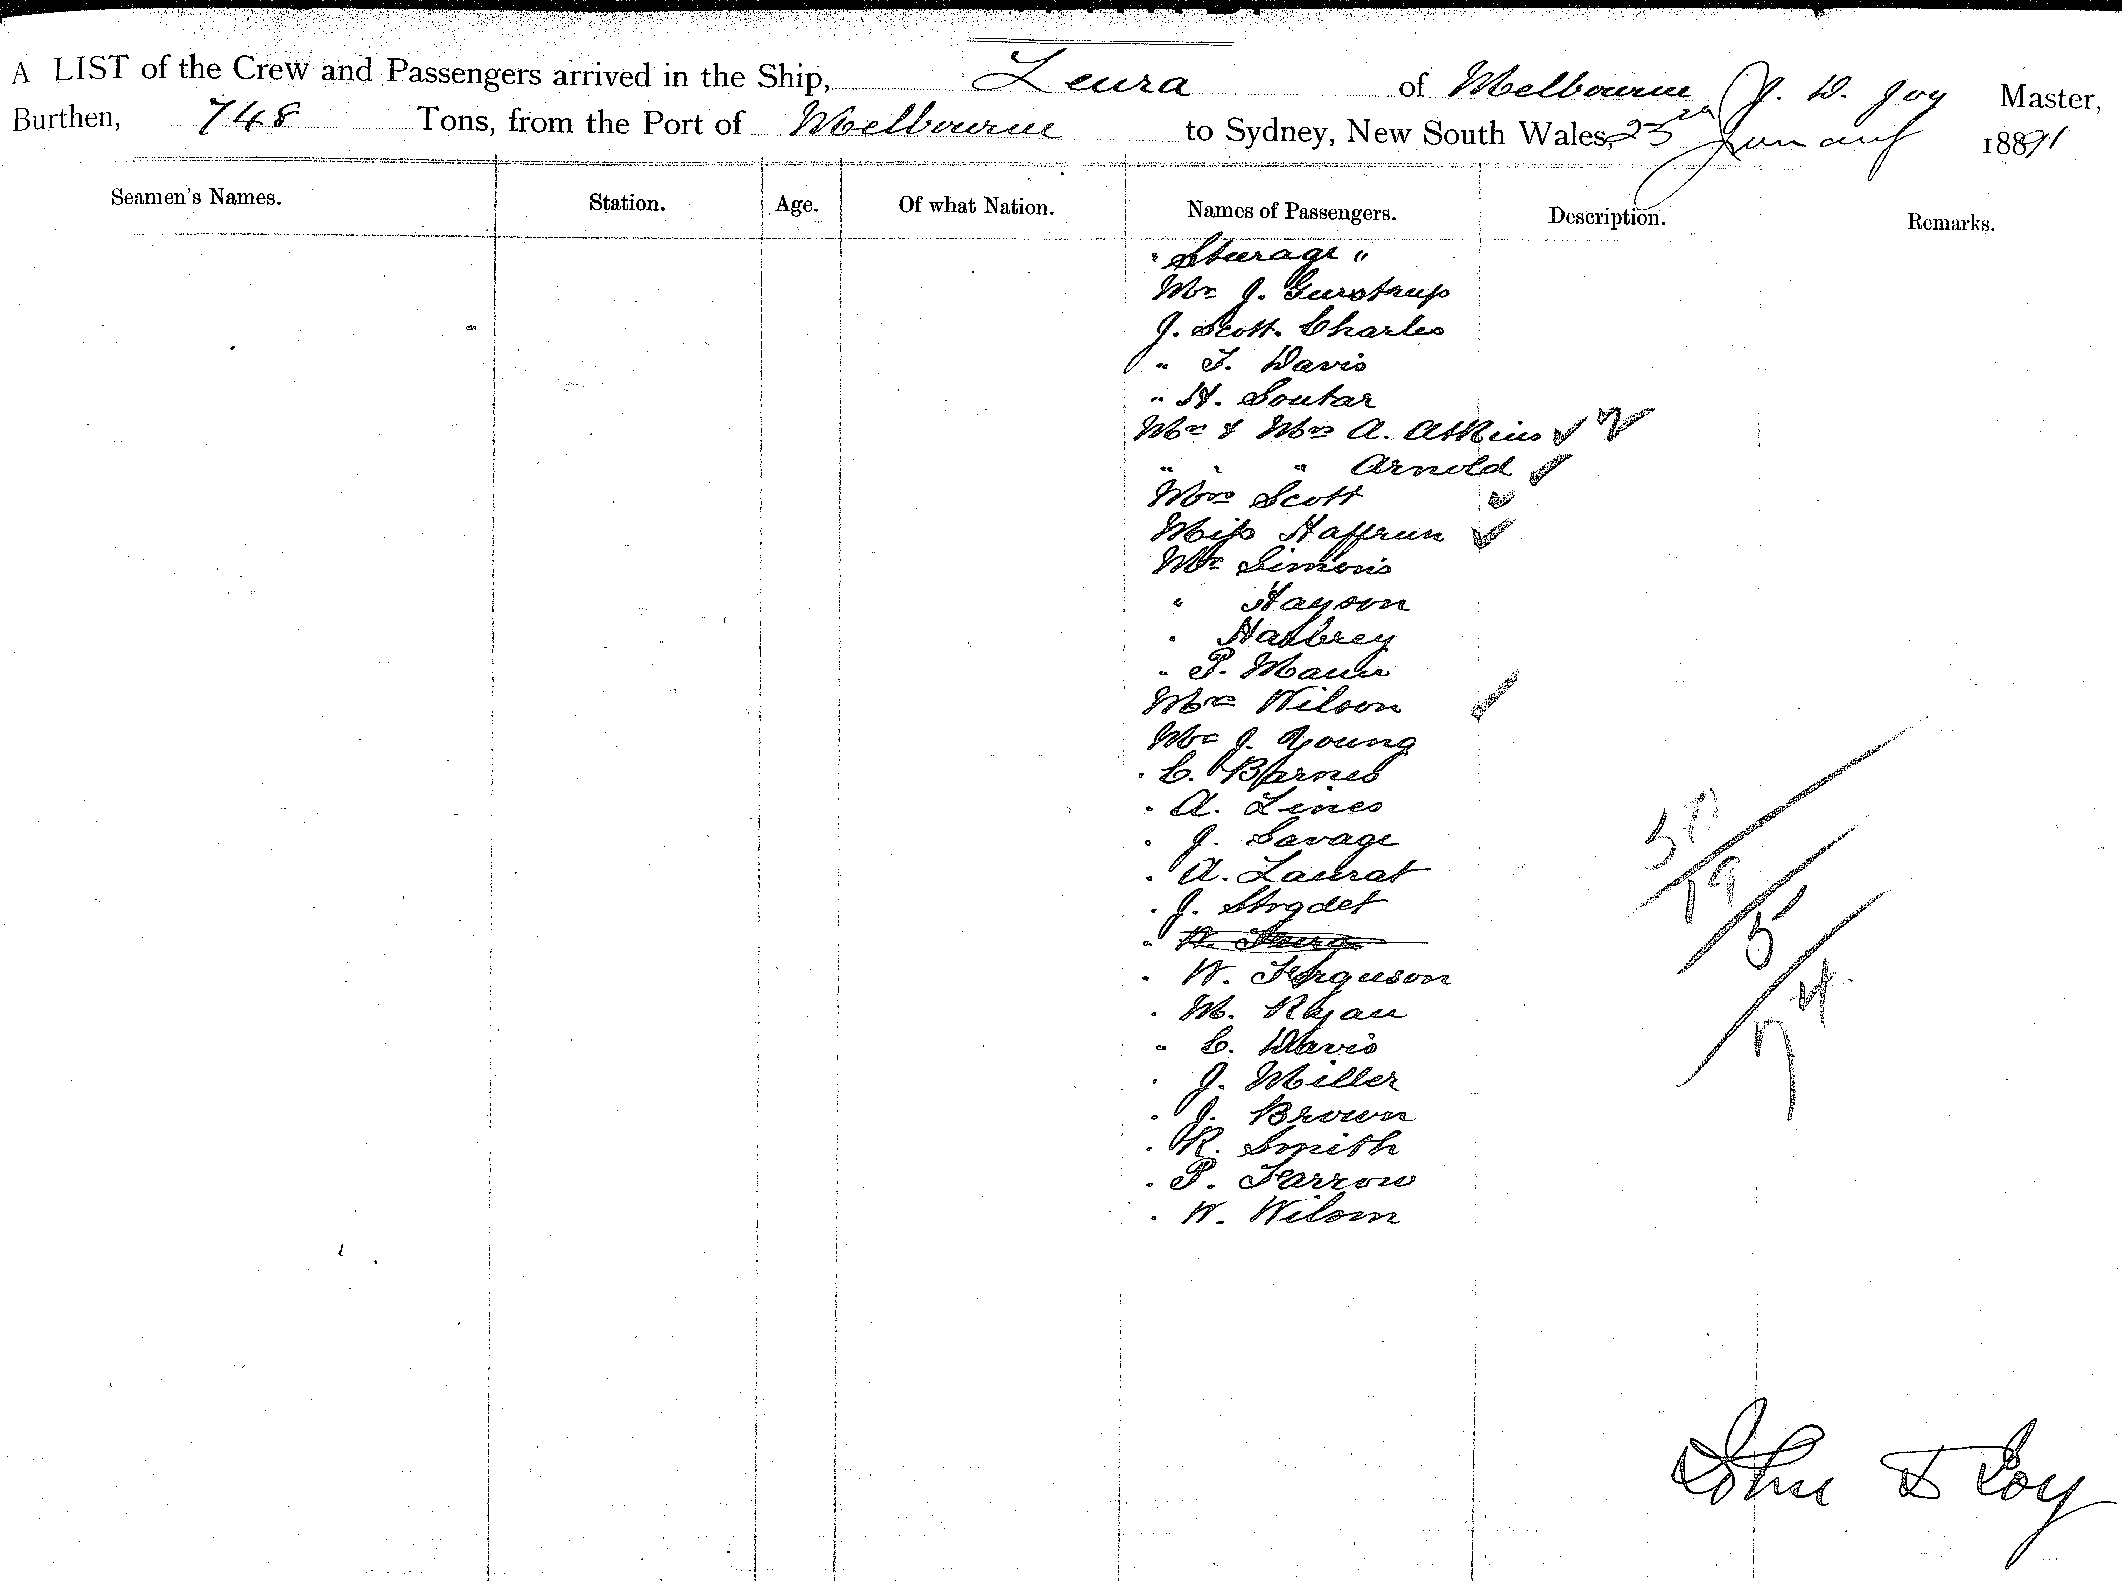 A LIST of the Crew and Passengers arrived in the Ship, Leura of Melbourne J. D. Joy Master,
Burthen, 748 Tons, from the Port of Melbourne to Sydney, New South Wales, 25th January 1891
Seamen's Names. Station. Age. Of what Nation. Names of Passengers. Description. Remarks.
" Steerage "
Mr J. Gurstrup
J. Scott. Charles
" T. Davis
" H. Soutar
Mr & Mrs A. Atkins
" " " Arnold
Mrs Scott
Miss Haffrun
Mr Simons
" Hayson
" Hasbrey
" P. Mann
Mrs Wilson
Mr J. Young
" C. Barnes
" A. Lines
" J. Savage
" A. Laurat
" J. Strgdet
"
" W. Ferguson
" M. Ryan
" C. Davis
" J. Miller
" J. Brown
" R. Smith
" P. Farrow
" W. Wilson
19
5
74
John D Joy